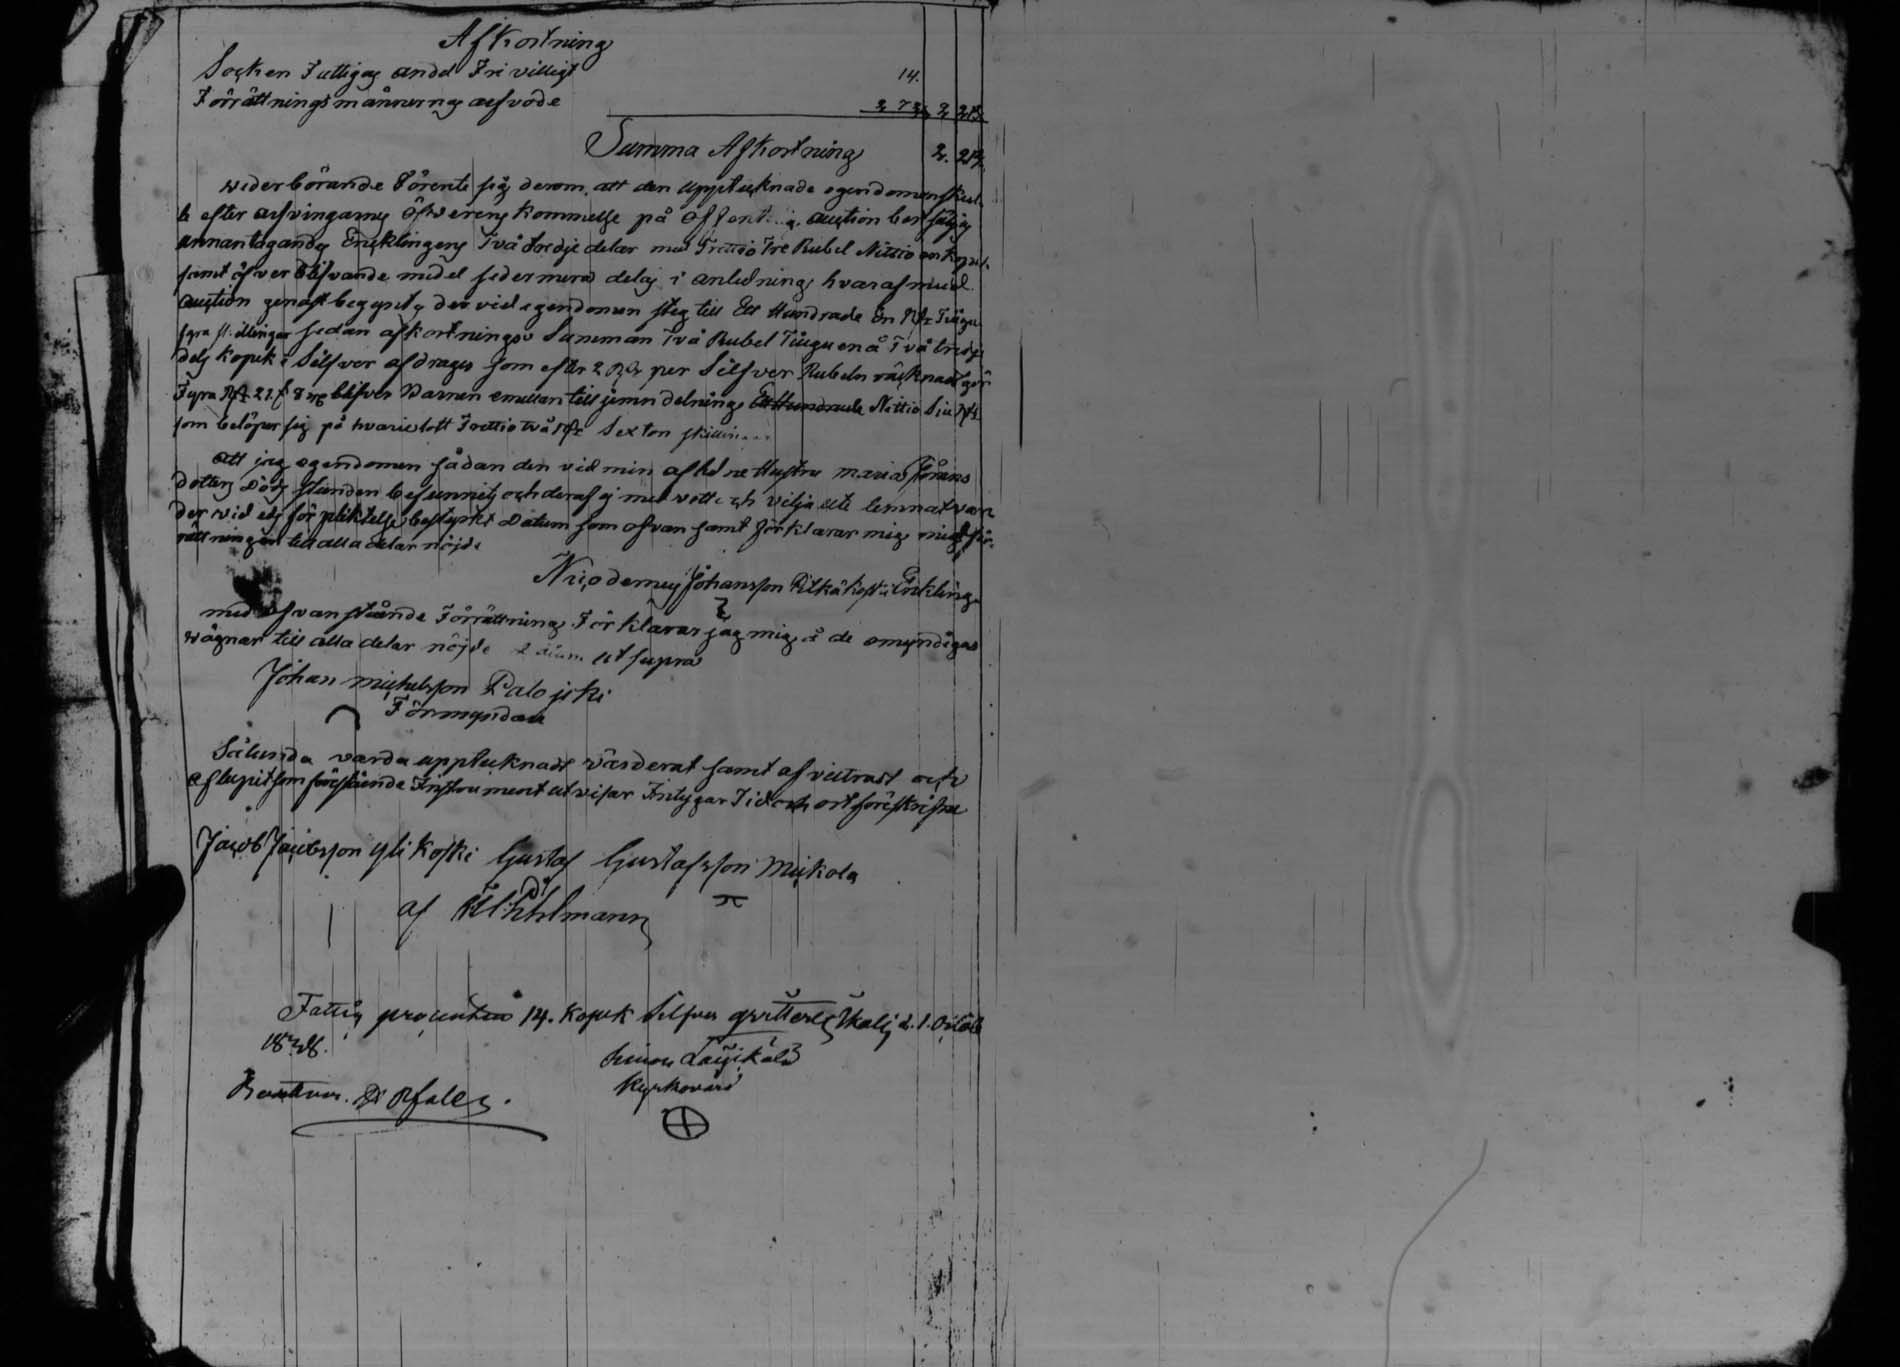 Afkortning
Socken Fattigas andel Frivilligt 14.
Förrättningsmännernas arfvode 2 7⅔ 2 21⅔
Summa Afkortning 2. 21⅔
Wederbörande Förente sig derom att den upptecknade egendomen skul-
le efter arfvingarnes öfverenskommelse på offentlig auction försäljas
annantagande Encklingens Två tredje delar med Trettio Tre Rubel Nittio kopek
samt öfverblifvande medel sedermera delas i anledning hvaraf med
auction genast begyntes der vid egendomen steg till Ett Hundrade En Rd Tiugu
fyra skillingar sedan afkortnings Summan Två Rubel Tiugu en å Två tredje
dels kopek i Silfver afdrages som efter 2 Rd per Silfver Rubeln räcknadt gör
Fyra Rd 21 s 8 blifver Barnen emellan till jemn delning Ett Hundrade Nittio Siu Rd
som belöper sig på hvarje lott Trettio två Rd Sexton skillin
Att jag egendomen sådan den vid min aflidne Hustru Maria Jörans
dotters Döds stunden befunnits och deraf ej med vett och vilja ute lemnat var
der vid eds förpliktelse bestyrkes Datum som ofvan samt förklarar mig med för-
rättningen till alla delar nöjd
Nicodemus Johansson Pitkäkoski Enklinge
med ofvanstående Förrättning Förklarar jag mig å de omyndigas
wägnar till alla delar nöjde Datum ut supra
Johan Michelsson Palojoki
Förmyndare
Sålunda varda upptecknadt värderat samt afvittrat och
aflupit som förestående Instrument utvisar Intygar Tid och ort föreskrifne
Jacob Jacobsson Ylikoski Gustaf Gustafsson Mickola
af
Fattig procenten 14. kopek Silfver qvitteras d. 1. Octob
1848.
Kyrkovärd